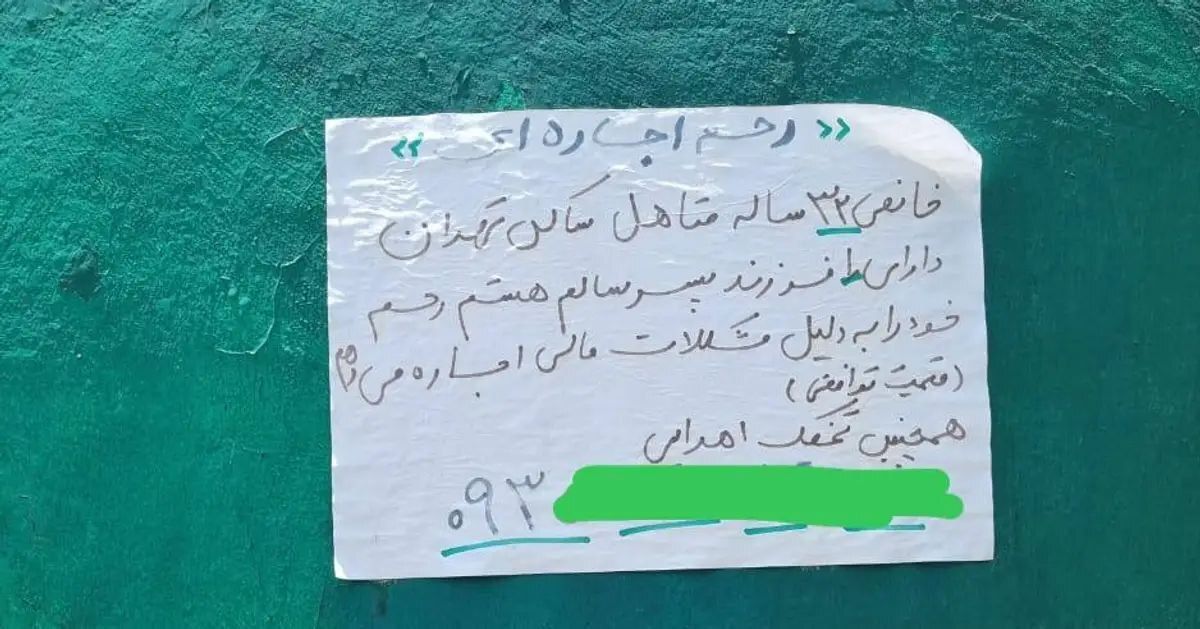 «رحم اجاره ای»
خانمی ۳۲ ساله متاهل ساکن تهران
دارای ۱ فرزند پسر سالم هستم رحم
خود را به دلیل مشکلات مالی اجاره می دهم
(قیمت توافقی)
همچنین تخمک اهدایی
۰۹۳